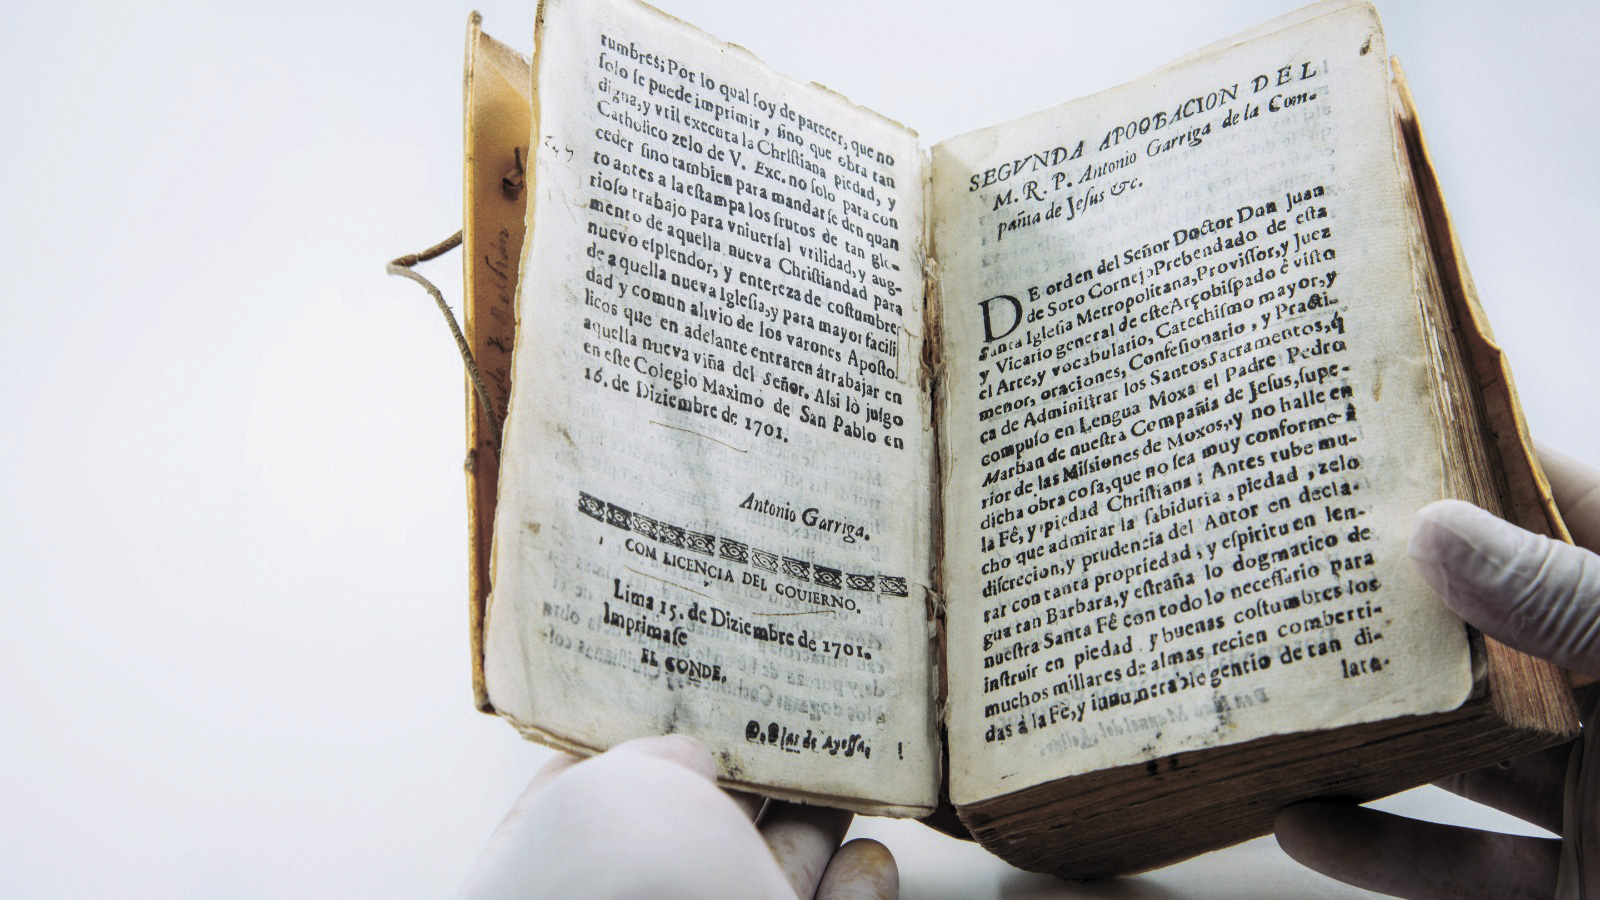 tumbres; Por lo qual soy de parecer, que no
solo se puede imprimir, sino que obra tan
digna, y vtil executa la Christiana piedad, y
Catholico zelo de V. Exc. no solo para con
ceder sino tambien para mandar se den quan
to antes a la estampa los frutos de tan glo-
rioso trabajo para vniuersal vtilidad, y aug-
mento de aquella nueva Christiandad para
nuevo esplendor, y entereza de costumbres
de aquella nueva Iglesia, y para mayor facili
dad y comun alivio de los varones Aposto.
licos que en adelante entraren átrabajar en
aquella nueva viña del Señor. Assi lò jusgo
en este Colegio Maximo de San Pablo en
16. de Diziembre de 1701.
Antonio Garriga.
COM LICENCIA DEL GOUIERNO.
Lima 15. de Diziembre de 1701.
Imprimase
EL CONDE.
D. Blas de Ayessa,
SEGVNDA APOOBACION DEL
M. R. P. Antonio Garriga de la Com-
pañia de Jesus &c.
DE orden del Señor Doctor Don Juan
de Soto Cornejo Prebendado de esta
Santa Iglesia Metropolitana, Provissor, y Juez
y Vicario general de este Arçobispado è visto
el Arte, y vocabulario, Catechismo mayor, y
menor, oraciones, Confesionario, y Practi-
ca de Administrar los Santos Sacramentos, q̃
compuso en Lengua Moxa el Padre Pedro
Marban de nuestra Compañia de Jesus, supe-
rior de las Missiones de Moxos, y no halle en
dicha obra cosa, que no sea muy conforme à
la Fê, y piedad Christiana; Antes tube mu-
cho que admirar la sabiduria, piedad, zelo
discrecion, y prudencia del Autor en decla-
rar con tanta propriedad, y espiritu en len-
gua tan Barbara, y estraña lo dogmatico de
nuestra Santa Fê con todo lo necessario para
instruir en piedad y buenas costumbres los
muchos millares de almas recien comberti-
das à la Fè, y innumerable gentio de tan di-
lata-